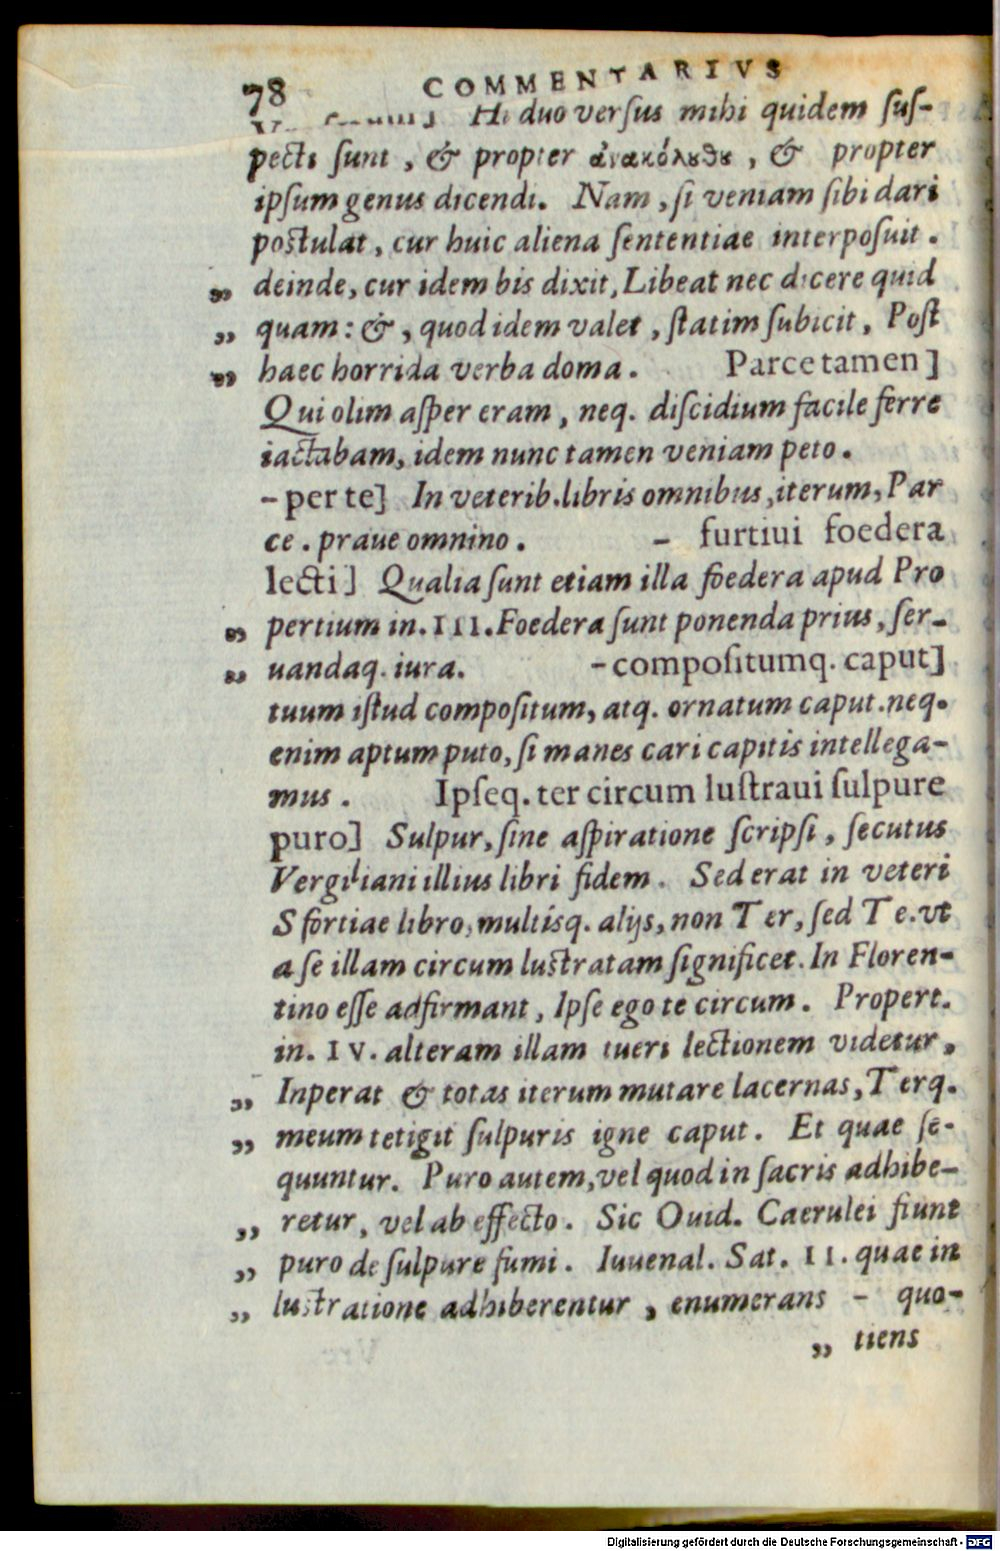 78 COMMENTARIVS
Hi duo verſus mihi quidem ſuſ-
pecti ſunt, & propter ἀνακόλȣθȣ, & propter
ipſum genus dicendi. Nam, ſi veniam ſibi dari
poſtulat, cur huic aliena ſententiae interpoſuit.
„ deinde, cur idem bis dixit, Libeat nec dicere quid
„ quam: &, quod idem valet, ſtatim ſubicit, Poſt
„ haec horrida verba doma. Parce tamen]
Qui olim aſper eram, neq. diſcidium facile ferre
iactabam, idem nunc tamen veniam peto.
- per te] In veterib. libris omnibus, iterum, Par
ce. praue omnino. - furtiui foedera
lecti] Qualia ſunt etiam illa foedera apud Pro
„ pertium in. III. Foedera ſunt ponenda prius, ſer-
„ uandaq. iura. - compoſitumq. caput]
tuum iſtud compoſitum, atq. ornatum caput. neq.
enim aptum puto, ſi manes cari capitis intellega-
mus. Ipſeq. ter circum luſtraui ſulpure
puro] Sulpur, ſine aſpiratione ſcripſi, ſecutus
Vergiliani illius libri fidem. Sed erat in veteri
Sfortiae libro, multisq. alijs, non Ter, ſed Te. vt
a ſe illam circum luſtratam ſignificet. In Floren-
tino eſſe adfirmant, Ipſe ego te circum. Propert.
in. IV. alteram illam tueri lectionem videtur,
„ Inperat & totas iterum mutare lacernas, Terq.
„ meum tetigit ſulpuris igne caput. Et quae ſe-
quuntur. Puro autem, vel quod in ſacris adhibe-
„ retur, vel ab effecto. Sic Ouid. Caerulei fiunt
„ puro de ſulpure fumi. Iuuenal. Sat. II. quae in
„ luſtratione adhiberentur, enumerans - quo-
„ tiens
Digitalisierung gefördert durch die Deutsche Forschungsgemeinschaft - DFG